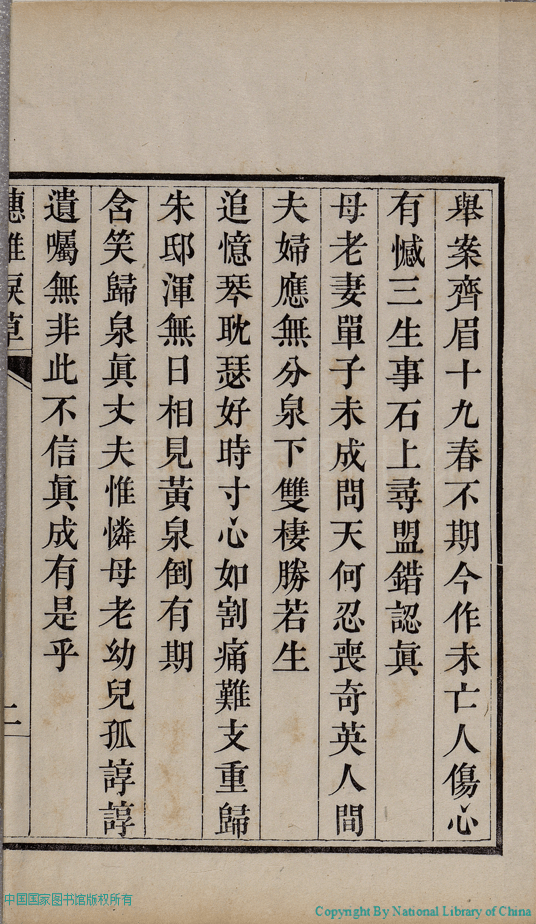 舉案齊眉十九春不期今作未亡人傷心
有憾三生事石上尋盟錯認眞
母老妻單子未成問天何忍喪奇英人間
夫婦應無分泉下雙棲勝若生
追憶琴耽瑟好時寸心如割痛難支重歸
朱邸渾無日相見黃泉倒有期
含笑歸泉眞丈夫惟憐母老幼兒孤諄諄
遺囑無非此不信眞成有是乎
二
中国国家图书馆版权所有
Copyright By National Library of China